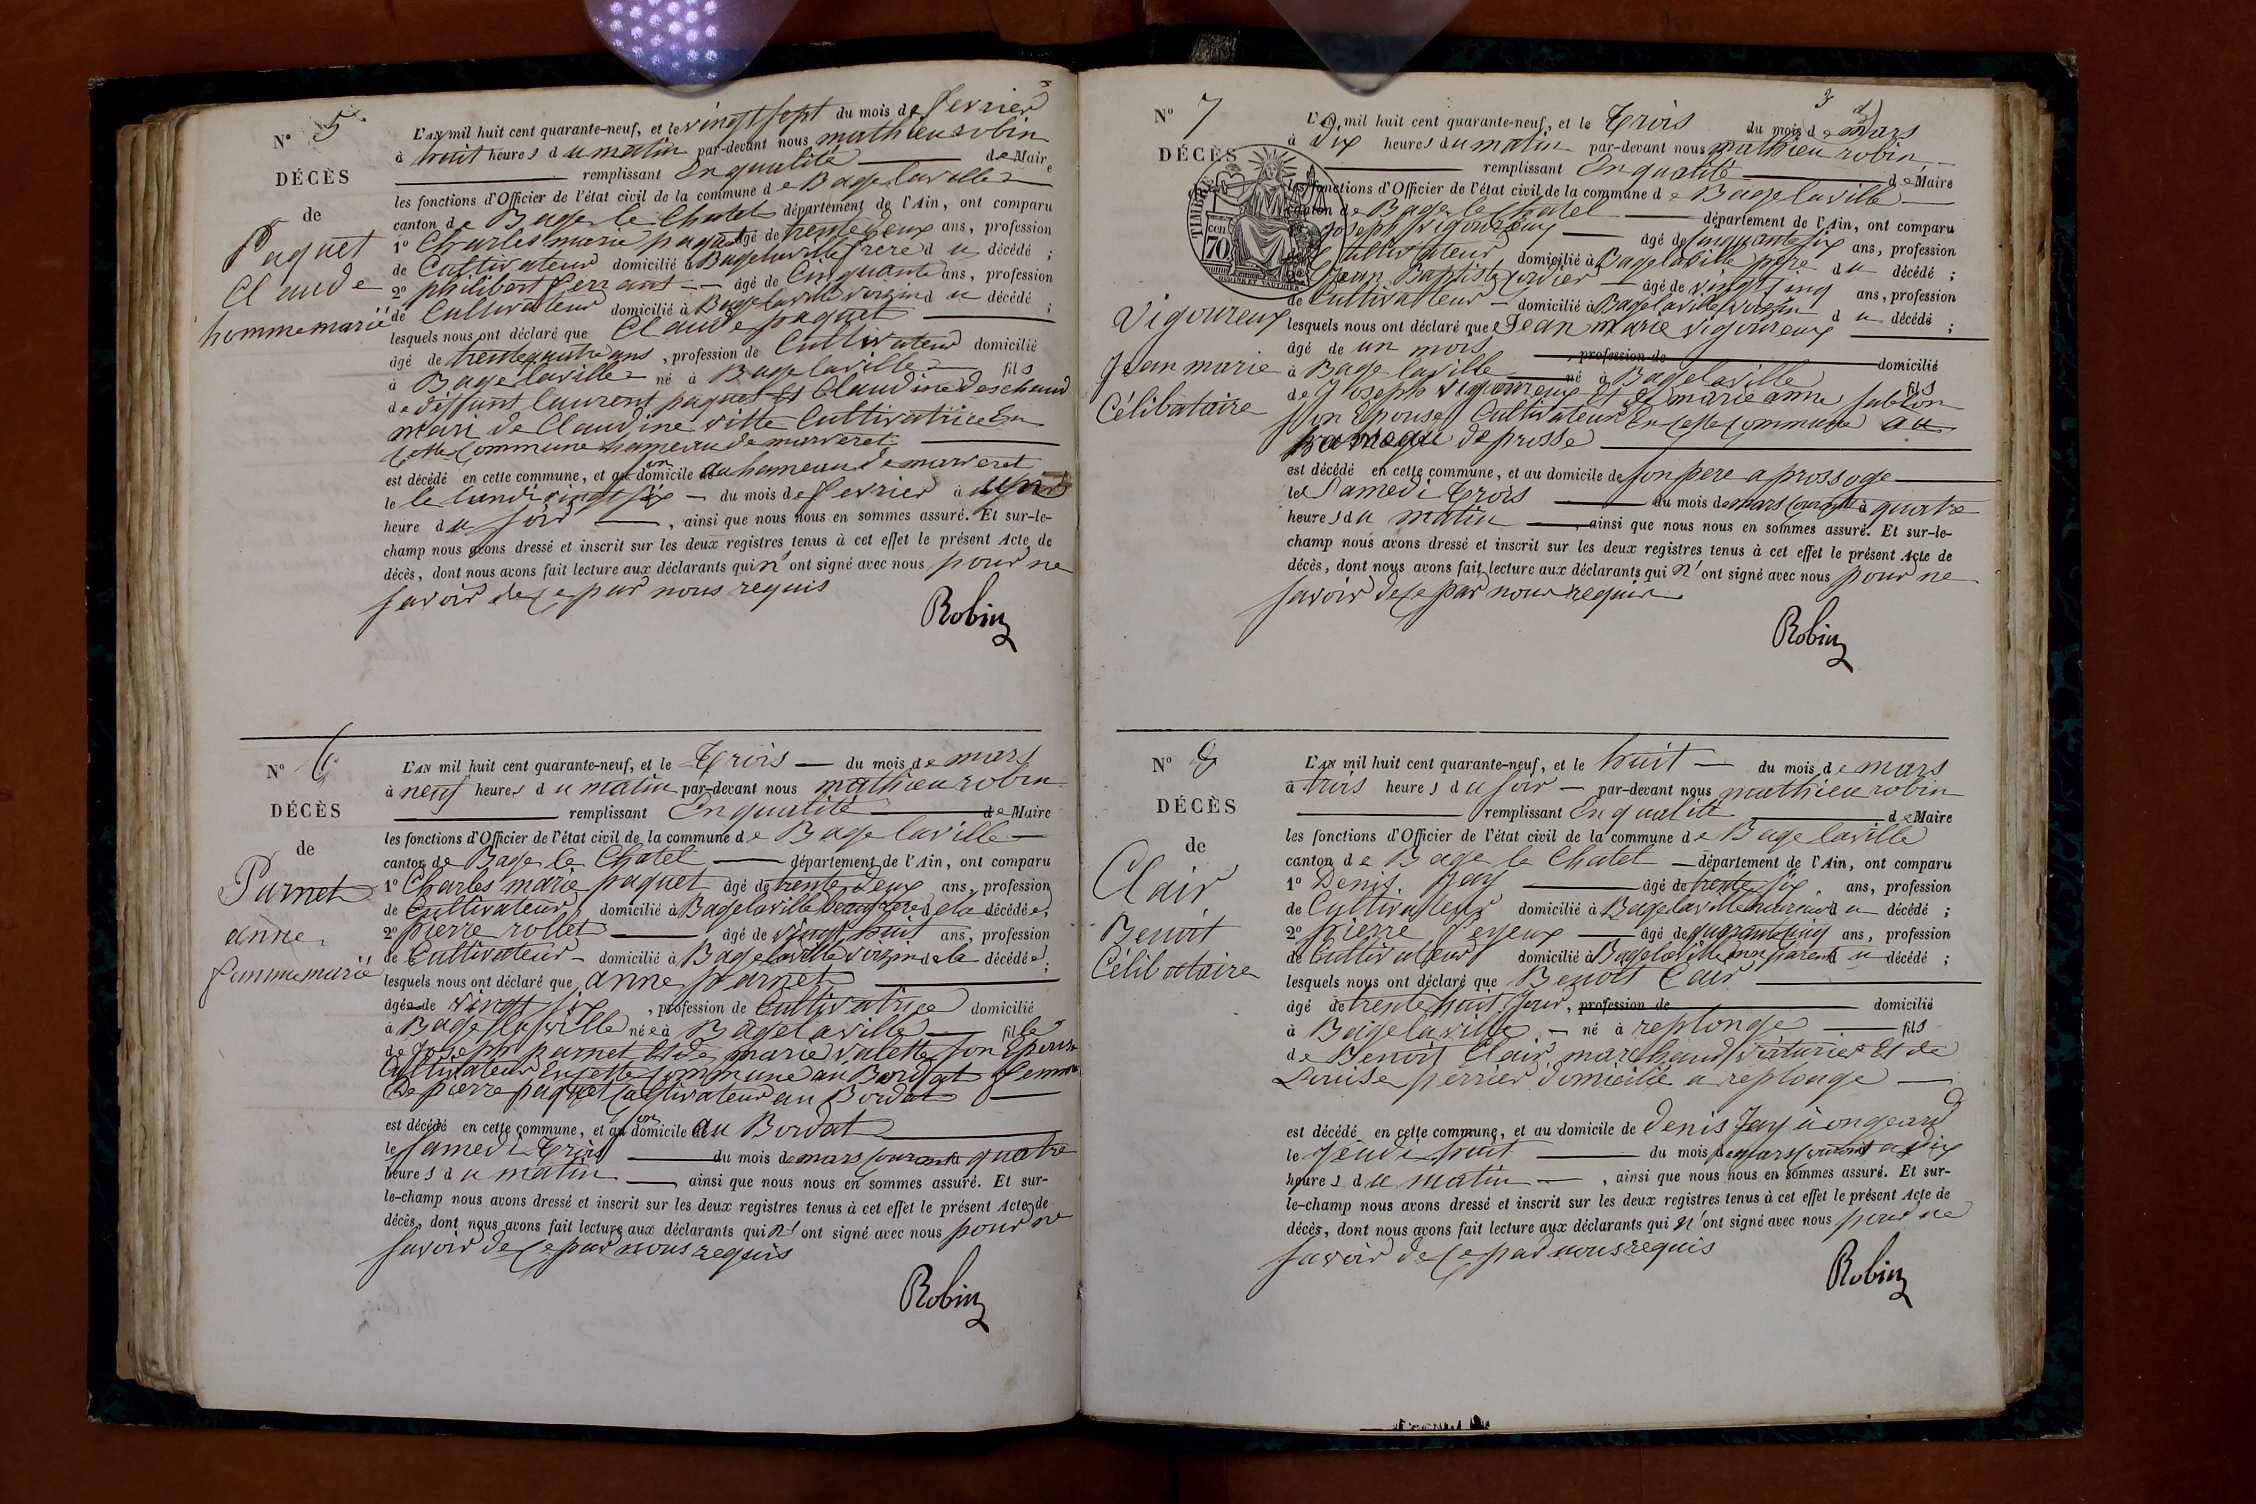 N° 5
DÉCÈS
de
Paquet
Claude
homme marié
L'AN mil huit cent quarante-neuf, et le vingt sept du mois de fevrier
à huit heures du matin par-devant nous mathieu robin
remplissant En qualité de Maire
les fonctions d'Officier de l'état civil de la commune de Bagé laville
canton de Bagé le Chatel département de l'Ain, ont comparu
1° Charles marie paquet âgé de trente deux ans, profession
de Cultivateur domicilié à Bagé laville frere du décédé ;
2° philibert ferrant âgé de Cinquante ans, profession
de Cultivateur domicilié à Bagé laville voizin du décédé ;
lesquels nous ont déclaré que Claude paquet
âgé de trente quatre ans, profession de Cultivateur domicilié
à Bagé laville né à Bagé laville fils
de deffunt laurent paquet Et Claudine deschaud
mari de Claudine vitte Cultivatrice En
cette commune hameau de marveret
est décédé en cette commune, et au son domicile au hameau de marveret
le lundi vingt six du mois de fevrier à
heure du soir, ainsi que nous nous en sommes assuré. Et sur-le-
champ nous avons dressé et inscrit sur les deux registres tenus à cet effet le présent Acte de
décès, dont nous avons fait lecture aux déclarants qui n'ont signé avec nous pour ne
savoir de ce par nous requis
Robin
N° 6
DÉCÈS
de
Parnet
anne
femme marié
L'AN mil huit cent quarante-neuf, et le Trois du mois de mars
à neuf heures du matin par-devant nous mathieu robin
remplissant En qualité de Maire
les fonctions d'Officier de l'état civil de la commune de Bagé laville
canton de Bagé le Chatel département de l'Ain, ont comparu
1° Charles marie paquet âgé de trente deux ans, profession
de Cultivateur domicilié à Bagé laville beaufrere de la décédée,
2° pierre rollet âgé de vingt huit ans, profession
de Cultivateur domicilié à Bagé laville voizin de la décédée ;
lesquels nous ont déclaré que anne parnet
âgée de vingt six, profession de Cultivatrice domicilié
à Bagé laville née à Bagé laville fille
de Joseph parnet Et de marie valette son Epouse
Cultivateur En cette commune au Bordat femme
De pierre paquet Cultivateur au Bordat
est décédé en cette commune, et au son domicile au Bordat
le samedi Trois du mois de mars courant à quatre
heures du matin ainsi que nous nous en sommes assuré. Et sur-
le-champ nous avons dressé et inscrit sur les deux registres tenus à cet effet le présent Acte de
décès, dont nous avons fait lecture aux déclarants qui n'ont signé avec nous pour ne
savoir de ce par nous requis
Robin
3
N° 7
DÉCÈS
TIMBRE
70 CEN
Vigoureux
Jean marie
Célibataire
L'AN mil huit cent quarante-neuf, et le Trois du mois de mars
à Dix heures du matin par-devant nous mathieu robin
remplissant En qualité de Maire
les fonctions d'Officier de l'état civil de la commune de Bagé laville
canton de Bagé le Chatel département de l'Ain, ont comparu
Joseph vigoureux âgé de cinquante six ans, profession
Cultivateur domicilié à Bagé laville père du décédé ;
Jean Baptiste âgé de vingt cinq ans, profession
de Cultivateur domicilié à Bagé laville voizin du décédé ;
lesquels nous ont déclaré que Jean marie vigoureux
âgé de un mois, profession de domicilié
à Bagé laville né à Bagé laville fils
de Joseph vigoureux Et de marie anne sablon
son Epouse Cultivateur En cette commune au
hameau de
est décédé en cette commune, et au domicile de son pere a
le Samedi Trois du mois de mars courant à quatre
heures du matin, ainsi que nous nous en sommes assuré. Et sur-le-
champ nous avons dressé et inscrit sur les deux registres tenus à cet effet le présent Acte de
décès, dont nous avons fait lecture aux déclarants qui n'ont signé avec nous pour ne
savoir de ce par nous requis
Robin
N° 8
DÉCÈS
de
Clair
Benoit
Célibataire
L'AN mil huit cent quarante-neuf, et le huit du mois de mars
à trois heures du soir par-devant nous mathieu robin
remplissant En qualité de Maire
les fonctions d'Officier de l'état civil de la commune de Bagé laville
canton de Bagé le Chatel département de l'Ain, ont comparu
1° Denis Jay âgé de trente six ans, profession
de Cultivateur domicilié à Bagé laville du décédé ;
2° pierre âgé de quarante cinq ans, profession
de Cultivateur domicilié à Bagé laville non parent du décédé ;
lesquels nous ont déclaré que Benoit Clair
âgé de trente huit jour, profession de domicilié
à Bagé laville né à replonge fils
de Benoit Clair marchand voiturier Et de
Louise perrier domicilié a replonge
est décédé en cette commune, et au domicile de Denis Jay à ongeard
le Jeudi huit du mois de mars courant à dix
heures du matin, ainsi que nous nous en sommes assuré. Et sur-
le-champ nous avons dressé et inscrit sur les deux registres tenus à cet effet le présent Acte de
décès, dont nous avons fait lecture aux déclarants qui n'ont signé avec nous pour ne
savoir de ce par nous requis
Robin